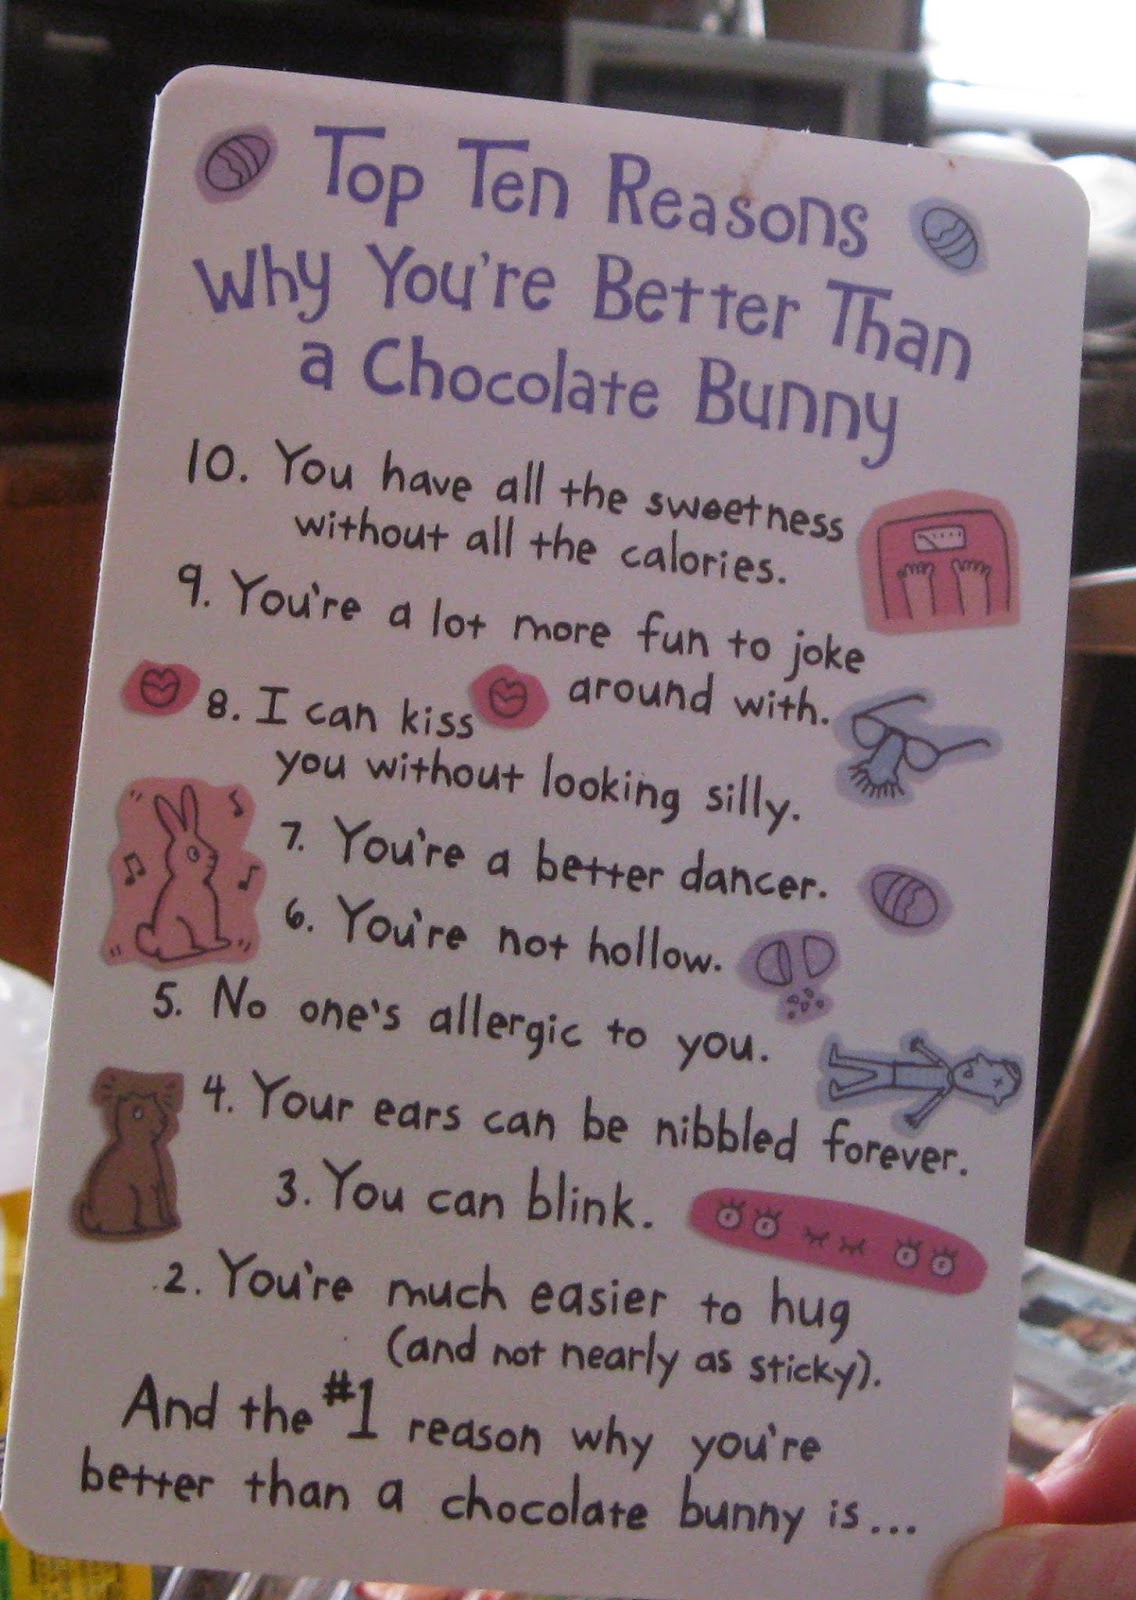 Top Ten Reasons
Why You're Better Than
a Chocolate Bunny
10. You have all the sweetness
without all the calories.
9. You're a lot more fun to joke
around with.
8. I can kiss
you without looking silly.
7. You're a better dancer.
6. You're not hollow.
5. No one's allergic to you.
4. Your ears can be nibbled forever.
3. You can blink.
2. You're much easier to hug
(and not nearly as sticky).
And the #1 reason why you're
better than a chocolate bunny is...